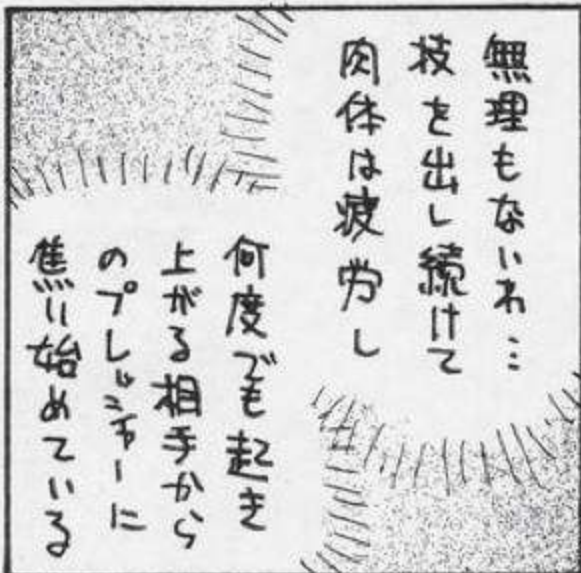 無理もないわ…
技を出し続けて
肉体は疲労し
何度でも起き
上がる相手から
のプレッシャーに
焦り始めている